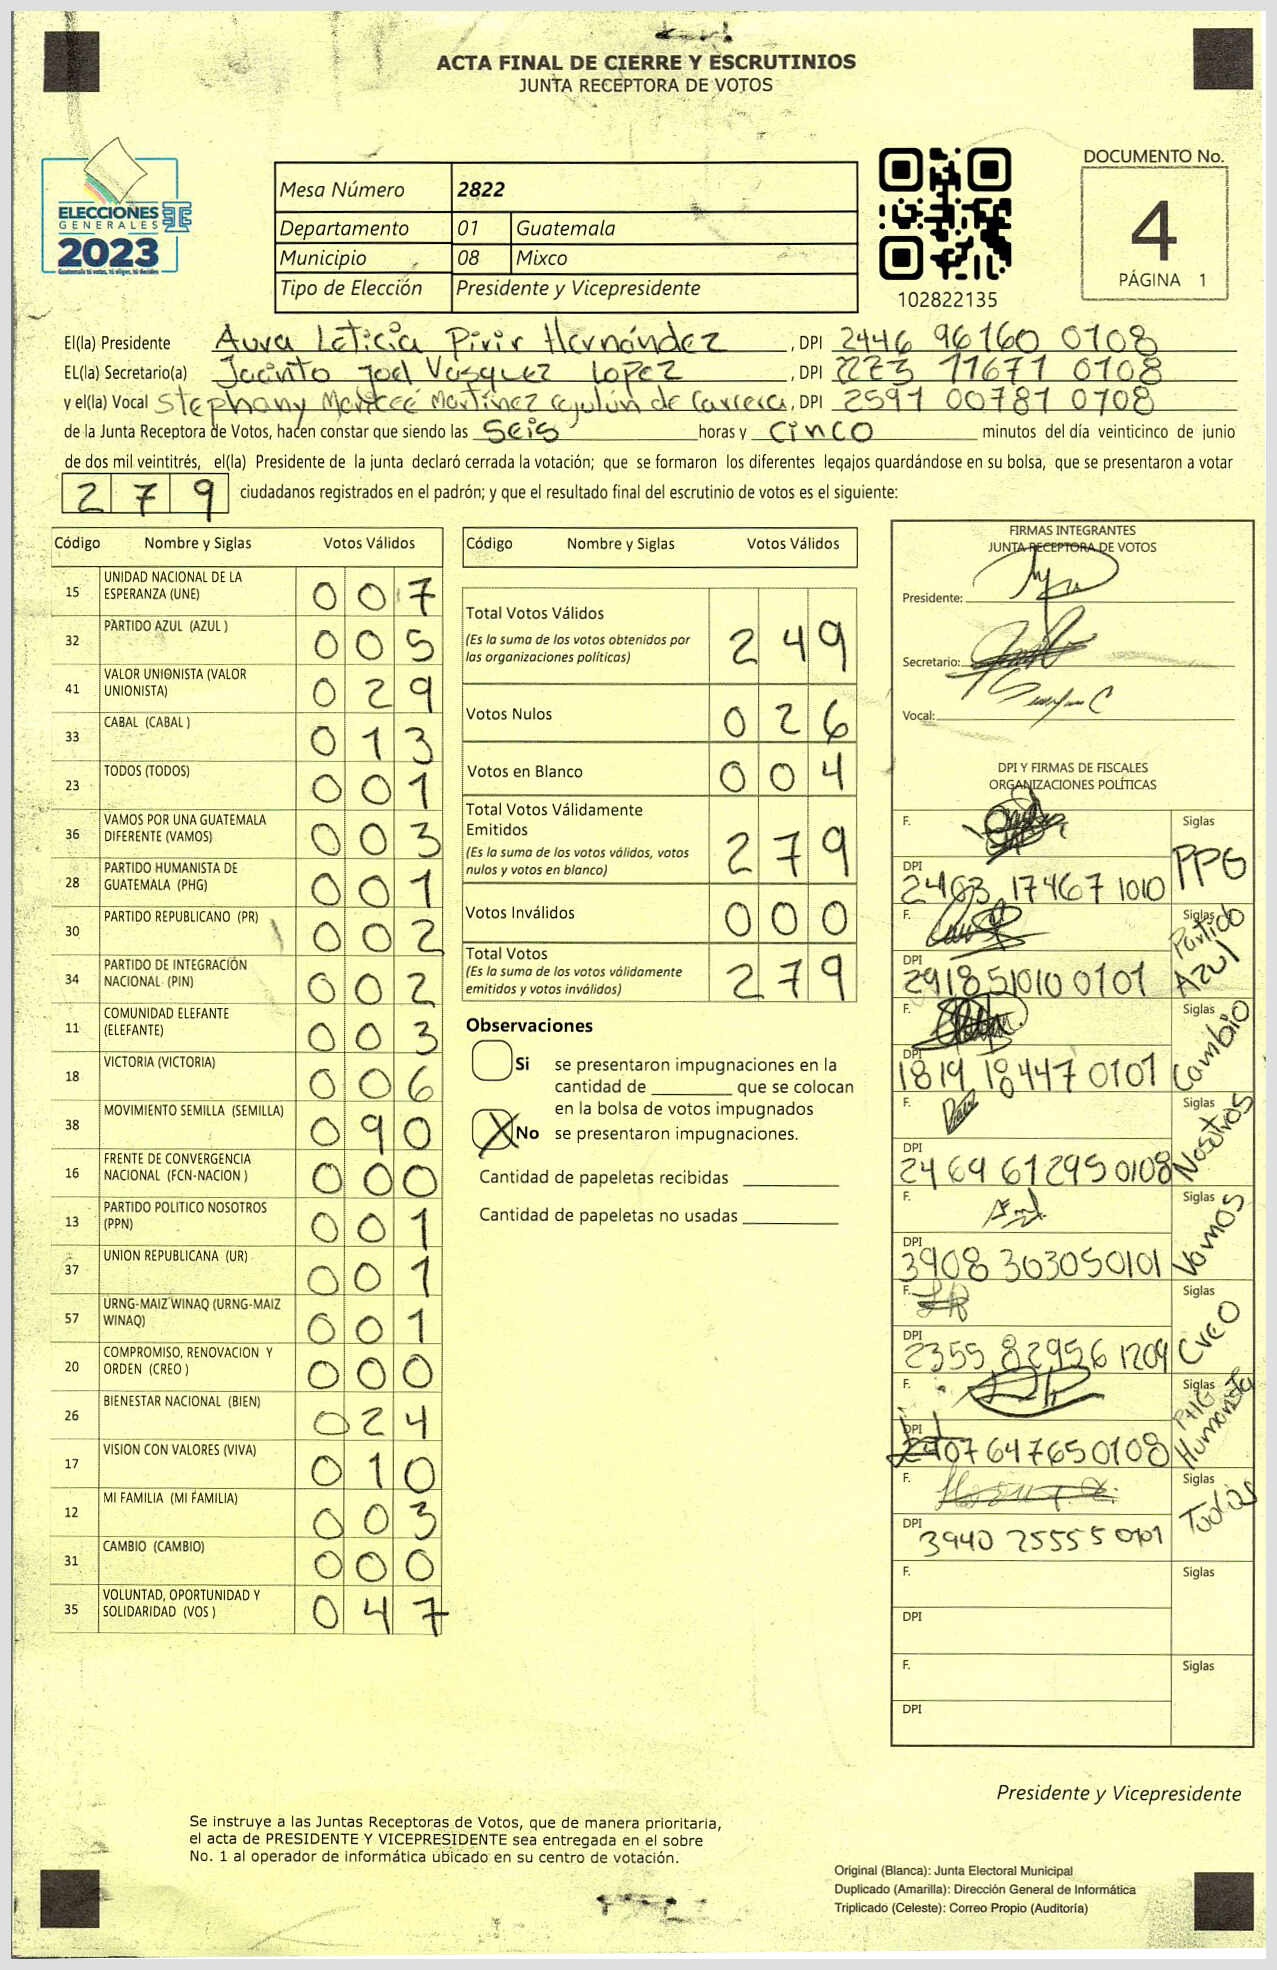 ACTA FINAL DE CIERRE Y ESCRUTINIOS
JUNTA RECEPTORA DE VOTOS
ELECCIONES
GENERALES
2023
Guatemala tú votas, tú eliges, tú decides
Mesa Número 2822
Departamento 01 Guatemala
Municipio 08 Mixco
Tipo de Elección Presidente y Vicepresidente
102822135
DOCUMENTO No.
4
PÁGINA 1
El(la) Presidente Aura Leticia Pirir Hernández, DPI 2446 96160 0108
EL(la) Secretario(a) Jacinto Joel Vasquez Lopez, DPI 2273 11671 0108
y el(la) Vocal Stephany Martínez de Carrera, DPI 2597 00781 0108
de la Junta Receptora de Votos, hacen constar que siendo las Seis horas y cinco minutos del día veinticinco de junio
de dos mil veintitrés, el(la) Presidente de la junta declaró cerrada la votación; que se formaron los diferentes legajos guardándose en su bolsa, que se presentaron a votar
279 ciudadanos registrados en el padrón; y que el resultado final del escrutinio de votos es el siguiente:
Código Nombre y Siglas Votos Válidos
15 UNIDAD NACIONAL DE LA ESPERANZA (UNE) 007
32 PARTIDO AZUL (AZUL ) 005
41 VALOR UNIONISTA (VALOR UNIONISTA) 029
33 CABAL (CABAL ) 013
23 TODOS (TODOS) 001
36 VAMOS POR UNA GUATEMALA DIFERENTE (VAMOS) 003
28 PARTIDO HUMANISTA DE GUATEMALA (PHG) 001
30 PARTIDO REPUBLICANO (PR) 002
34 PARTIDO DE INTEGRACIÓN NACIONAL (PIN) 002
11 COMUNIDAD ELEFANTE (ELEFANTE) 003
18 VICTORIA (VICTORIA) 006
38 MOVIMIENTO SEMILLA (SEMILLA) 090
16 FRENTE DE CONVERGENCIA NACIONAL (FCN-NACION ) 000
13 PARTIDO POLITICO NOSOTROS (PPN) 001
37 UNION REPUBLICANA (UR) 001
57 URNG-MAIZ WINAQ (URNG-MAIZ WINAQ) 001
20 COMPROMISO, RENOVACION Y ORDEN (CREO ) 000
26 BIENESTAR NACIONAL (BIEN) 024
17 VISION CON VALORES (VIVA) 010
12 MI FAMILIA (MI FAMILIA) 003
31 CAMBIO (CAMBIO) 000
35 VOLUNTAD, OPORTUNIDAD Y SOLIDARIDAD (VOS ) 047
Código Nombre y Siglas Votos Válidos
Total Votos Válidos 249
(Es la suma de los votos obtenidos por
las organizaciones políticas)
Votos Nulos 026
Votos en Blanco 004
Total Votos Válidamente
Emitidos 279
(Es la suma de los votos válidos, votos
nulos y votos en blanco)
Votos Inválidos 000
Total Votos 279
(Es la suma de los votos válidamente
emitidos y votos inválidos)
Observaciones
Si se presentaron impugnaciones en la
cantidad de ________ que se colocan
en la bolsa de votos impugnados
X No se presentaron impugnaciones.
Cantidad de papeletas recibidas
Cantidad de papeletas no usadas
FIRMAS INTEGRANTES
JUNTA RECEPTORA DE VOTOS
Presidente:
Secretario:
Vocal:
DPI Y FIRMAS DE FISCALES
ORGANIZACIONES POLÍTICAS
F. Siglas PPG
DPI 2463 17467 1010
F. Siglas Partido Azul
DPI 2918 51010 0101
F. Siglas Cambio
DPI 1819 18447 0101
F. Siglas Nosotros
DPI 2469 61295 0108
F. Siglas Vamos
DPI 3908 30305 0101
F. Siglas Creo
DPI 2355 82956 1209
F. Siglas PHG Humanista
DPI 2407 64765 0108
F. Siglas Todos
DPI 3940 25555 0101
F. Siglas
DPI
F. Siglas
DPI
Presidente y Vicepresidente
Se instruye a las Juntas Receptoras de Votos, que de manera prioritaria,
el acta de PRESIDENTE Y VICEPRESIDENTE sea entregada en el sobre
No. 1 al operador de informática ubicado en su centro de votación.
Original (Blanca): Junta Electoral Municipal
Duplicado (Amarilla): Dirección General de Informática
Triplicado (Celeste): Correo Propio (Auditoría)